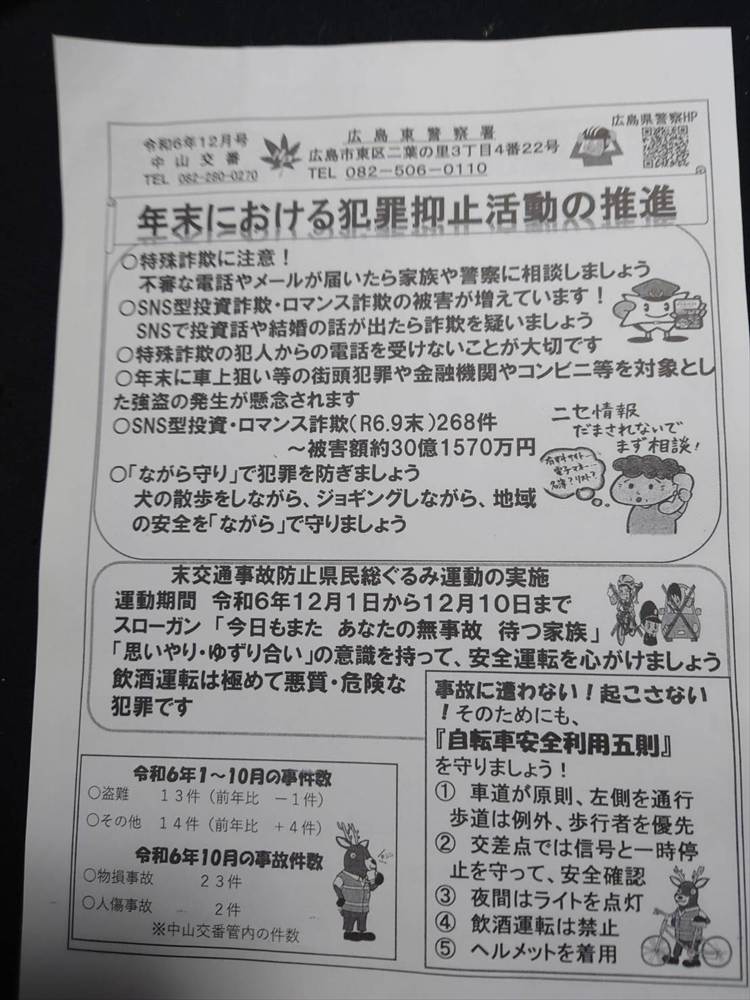 令和6年12月号
中山交番
TEL 082-280-0270
広島東警察署
広島市東区二葉の里3丁目4番22号
TEL 082-506-0110
広島県警察HP
年末における犯罪抑止活動の推進
○特殊詐欺に注意！
不審な電話やメールが届いたら家族や警察に相談しましょう
○SNS型投資詐欺・ロマンス詐欺の被害が増えています！
SNSで投資話や結婚の話が出たら詐欺を疑いましょう
○特殊詐欺の犯人からの電話を受けないことが大切です
○年末に車上狙い等の街頭犯罪や金融機関やコンビニ等を対象とし
た強盗の発生が懸念されます
○SNS型投資・ロマンス詐欺（R6.9末）268件
～被害額約30億1570万円
ニセ情報
だまされないで
まず相談！
有料サイト…
電子マネー…
名簿？リスト？
○「ながら守り」で犯罪を防ぎましょう
犬の散歩をしながら、ジョギングしながら、地域
の安全を「ながら」で守りましょう
末交通事故防止県民総ぐるみ運動の実施
運動期間　令和6年12月1日から12月10日まで
スローガン「今日もまた　あなたの無事故　待つ家族」
「思いやり・ゆずり合い」の意識を持って、安全運転を心がけましょう
飲酒運転は極めて悪質・危険な
犯罪です
令和6年1～10月の事件数
○盗難　13件（前年比　－1件）
○その他　14件（前年比　＋4件）
令和6年10月の事故件数
○物損事故　23件
○人傷事故　2件
※中山交番管内の件数
事故に遭わない！起こさない
！そのためにも、
『自転車安全利用五則』
を守りましょう！
① 車道が原則、左側を通行
歩道は例外、歩行者を優先
② 交差点では信号と一時停
止を守って、安全確認
③ 夜間はライトを点灯
④ 飲酒運転は禁止
⑤ ヘルメットを着用